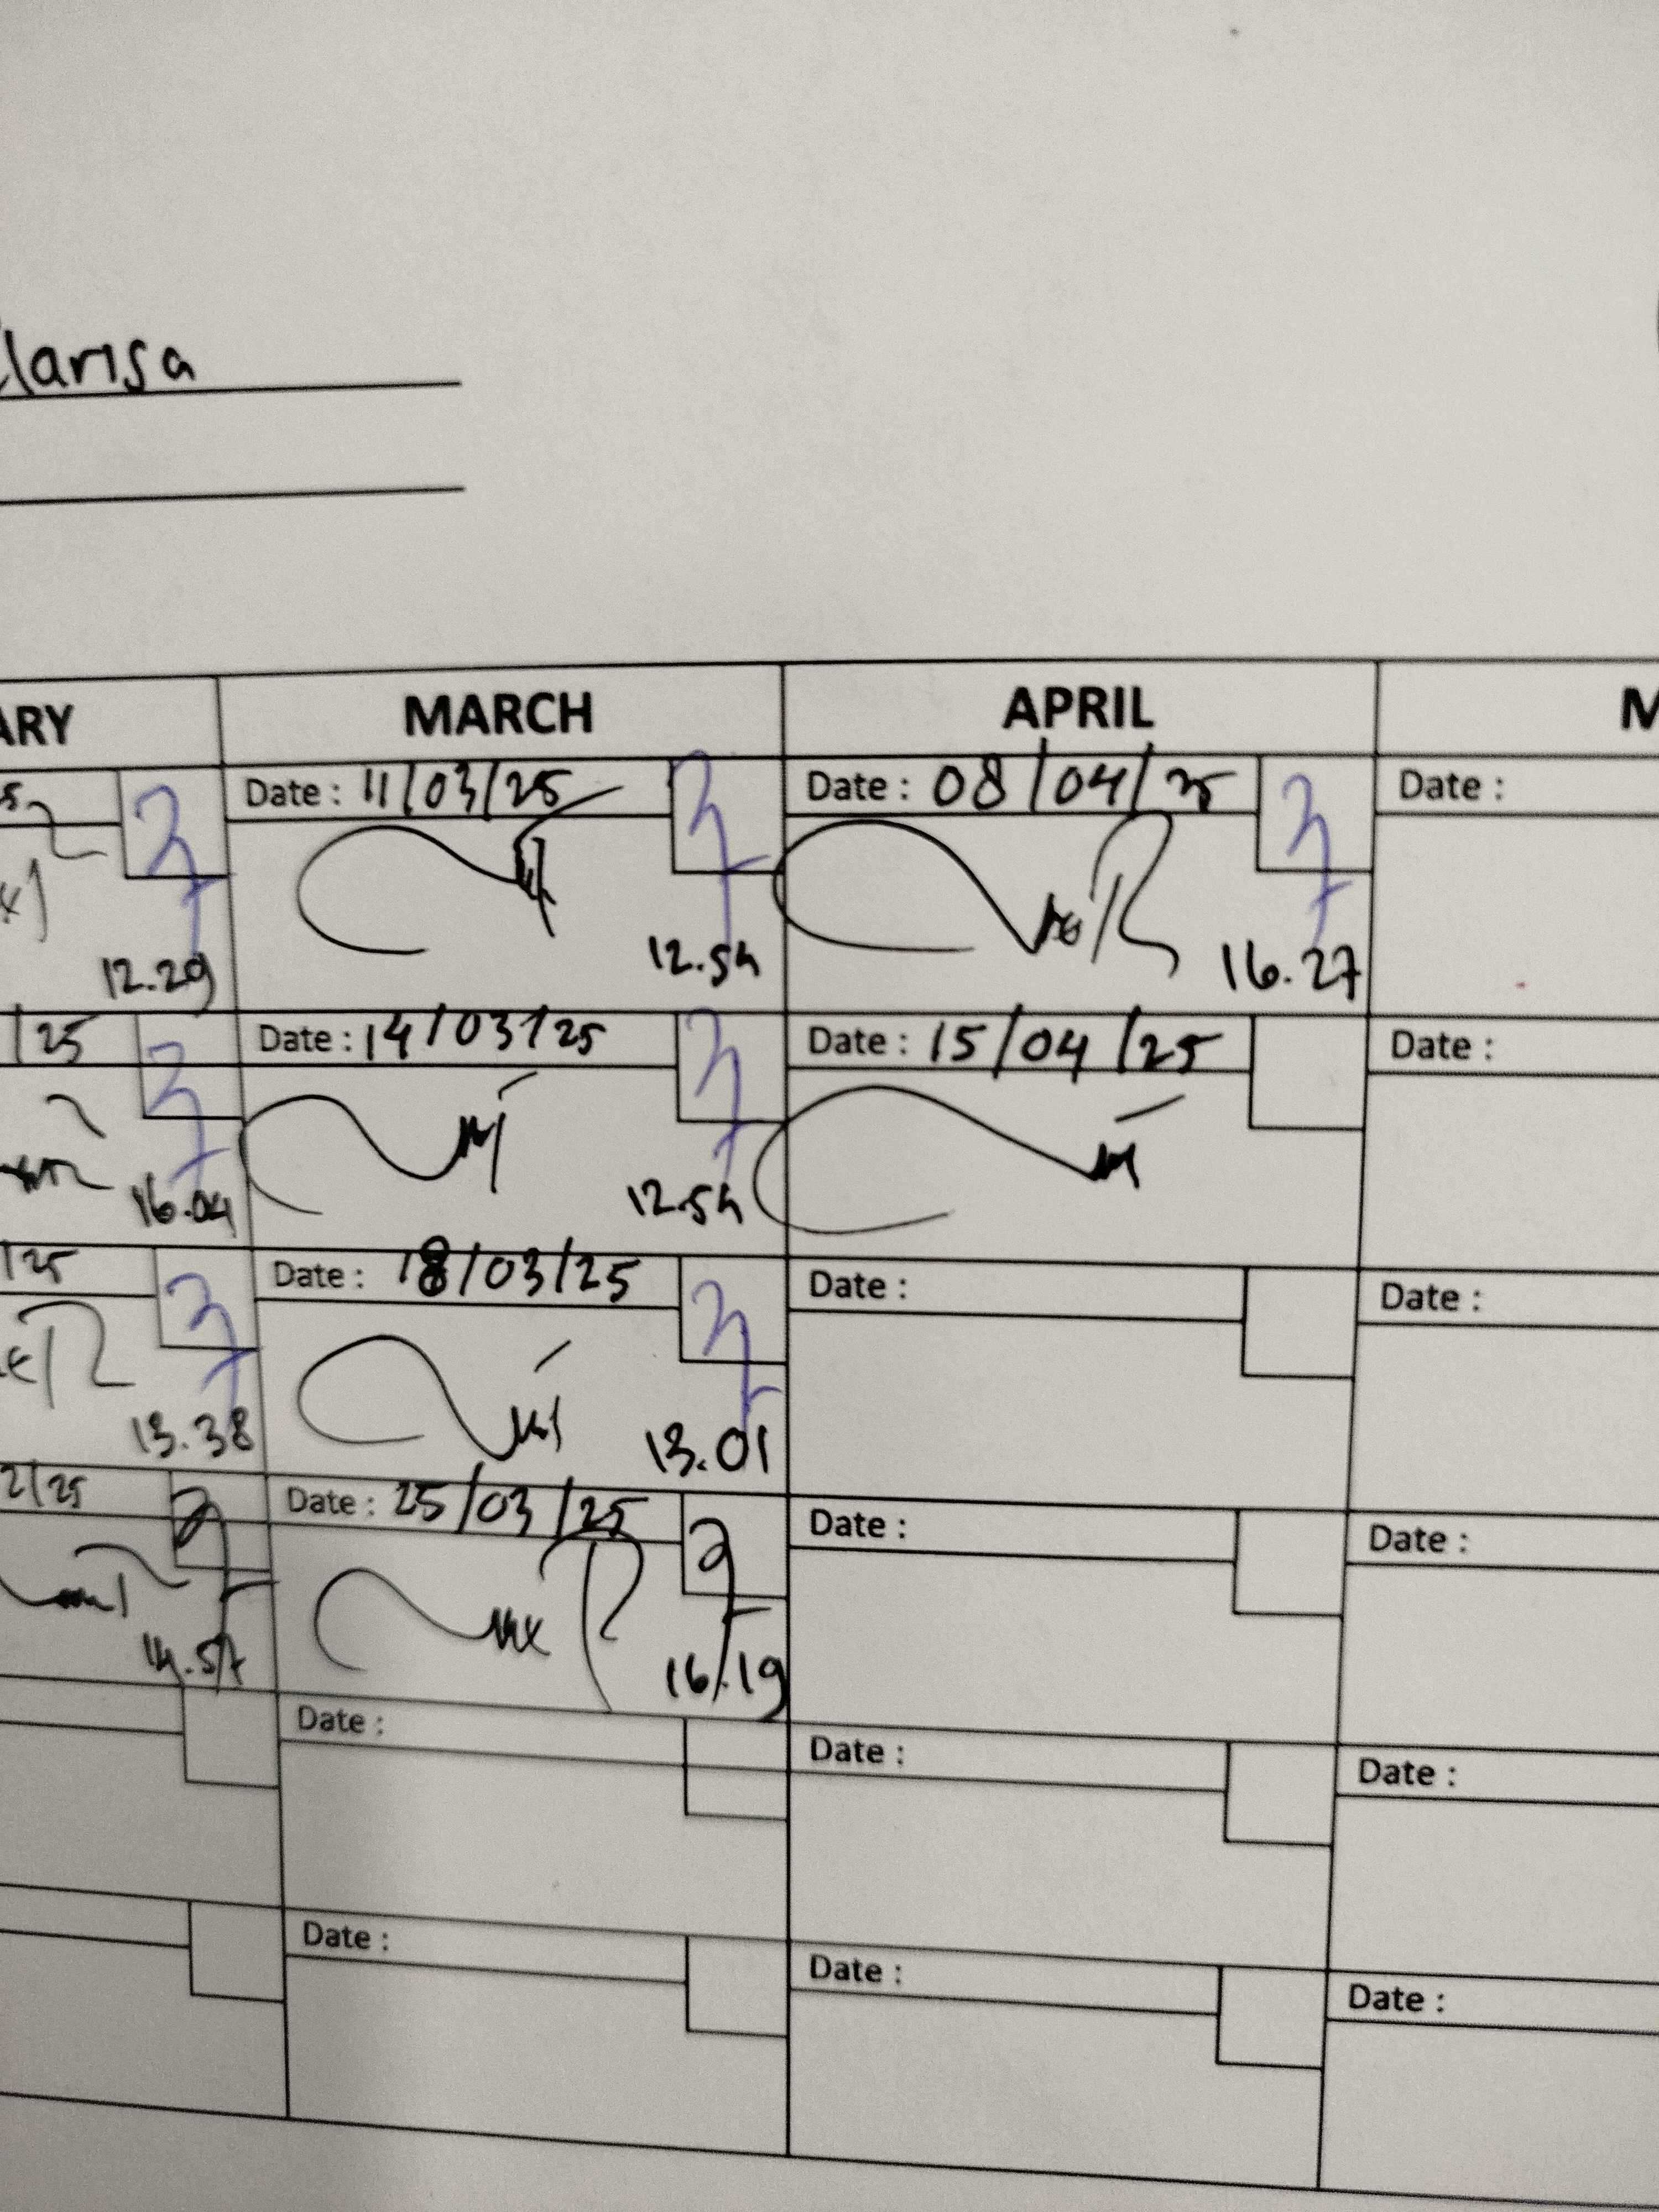 larisa
ARY MARCH APRIL M
Date : 11/03/25 Date : 08/04/25 Date :
12.29 12.54 16.27
/25 Date : 14/03/25 Date : 15/04/25 Date :
16.04 12.54
/25 Date : 18/03/25 Date : Date :
13.38 13.01
2/25 Date : 25/03/25 Date : Date :
14.57 16.19
Date : Date : Date :
Date : Date : Date :